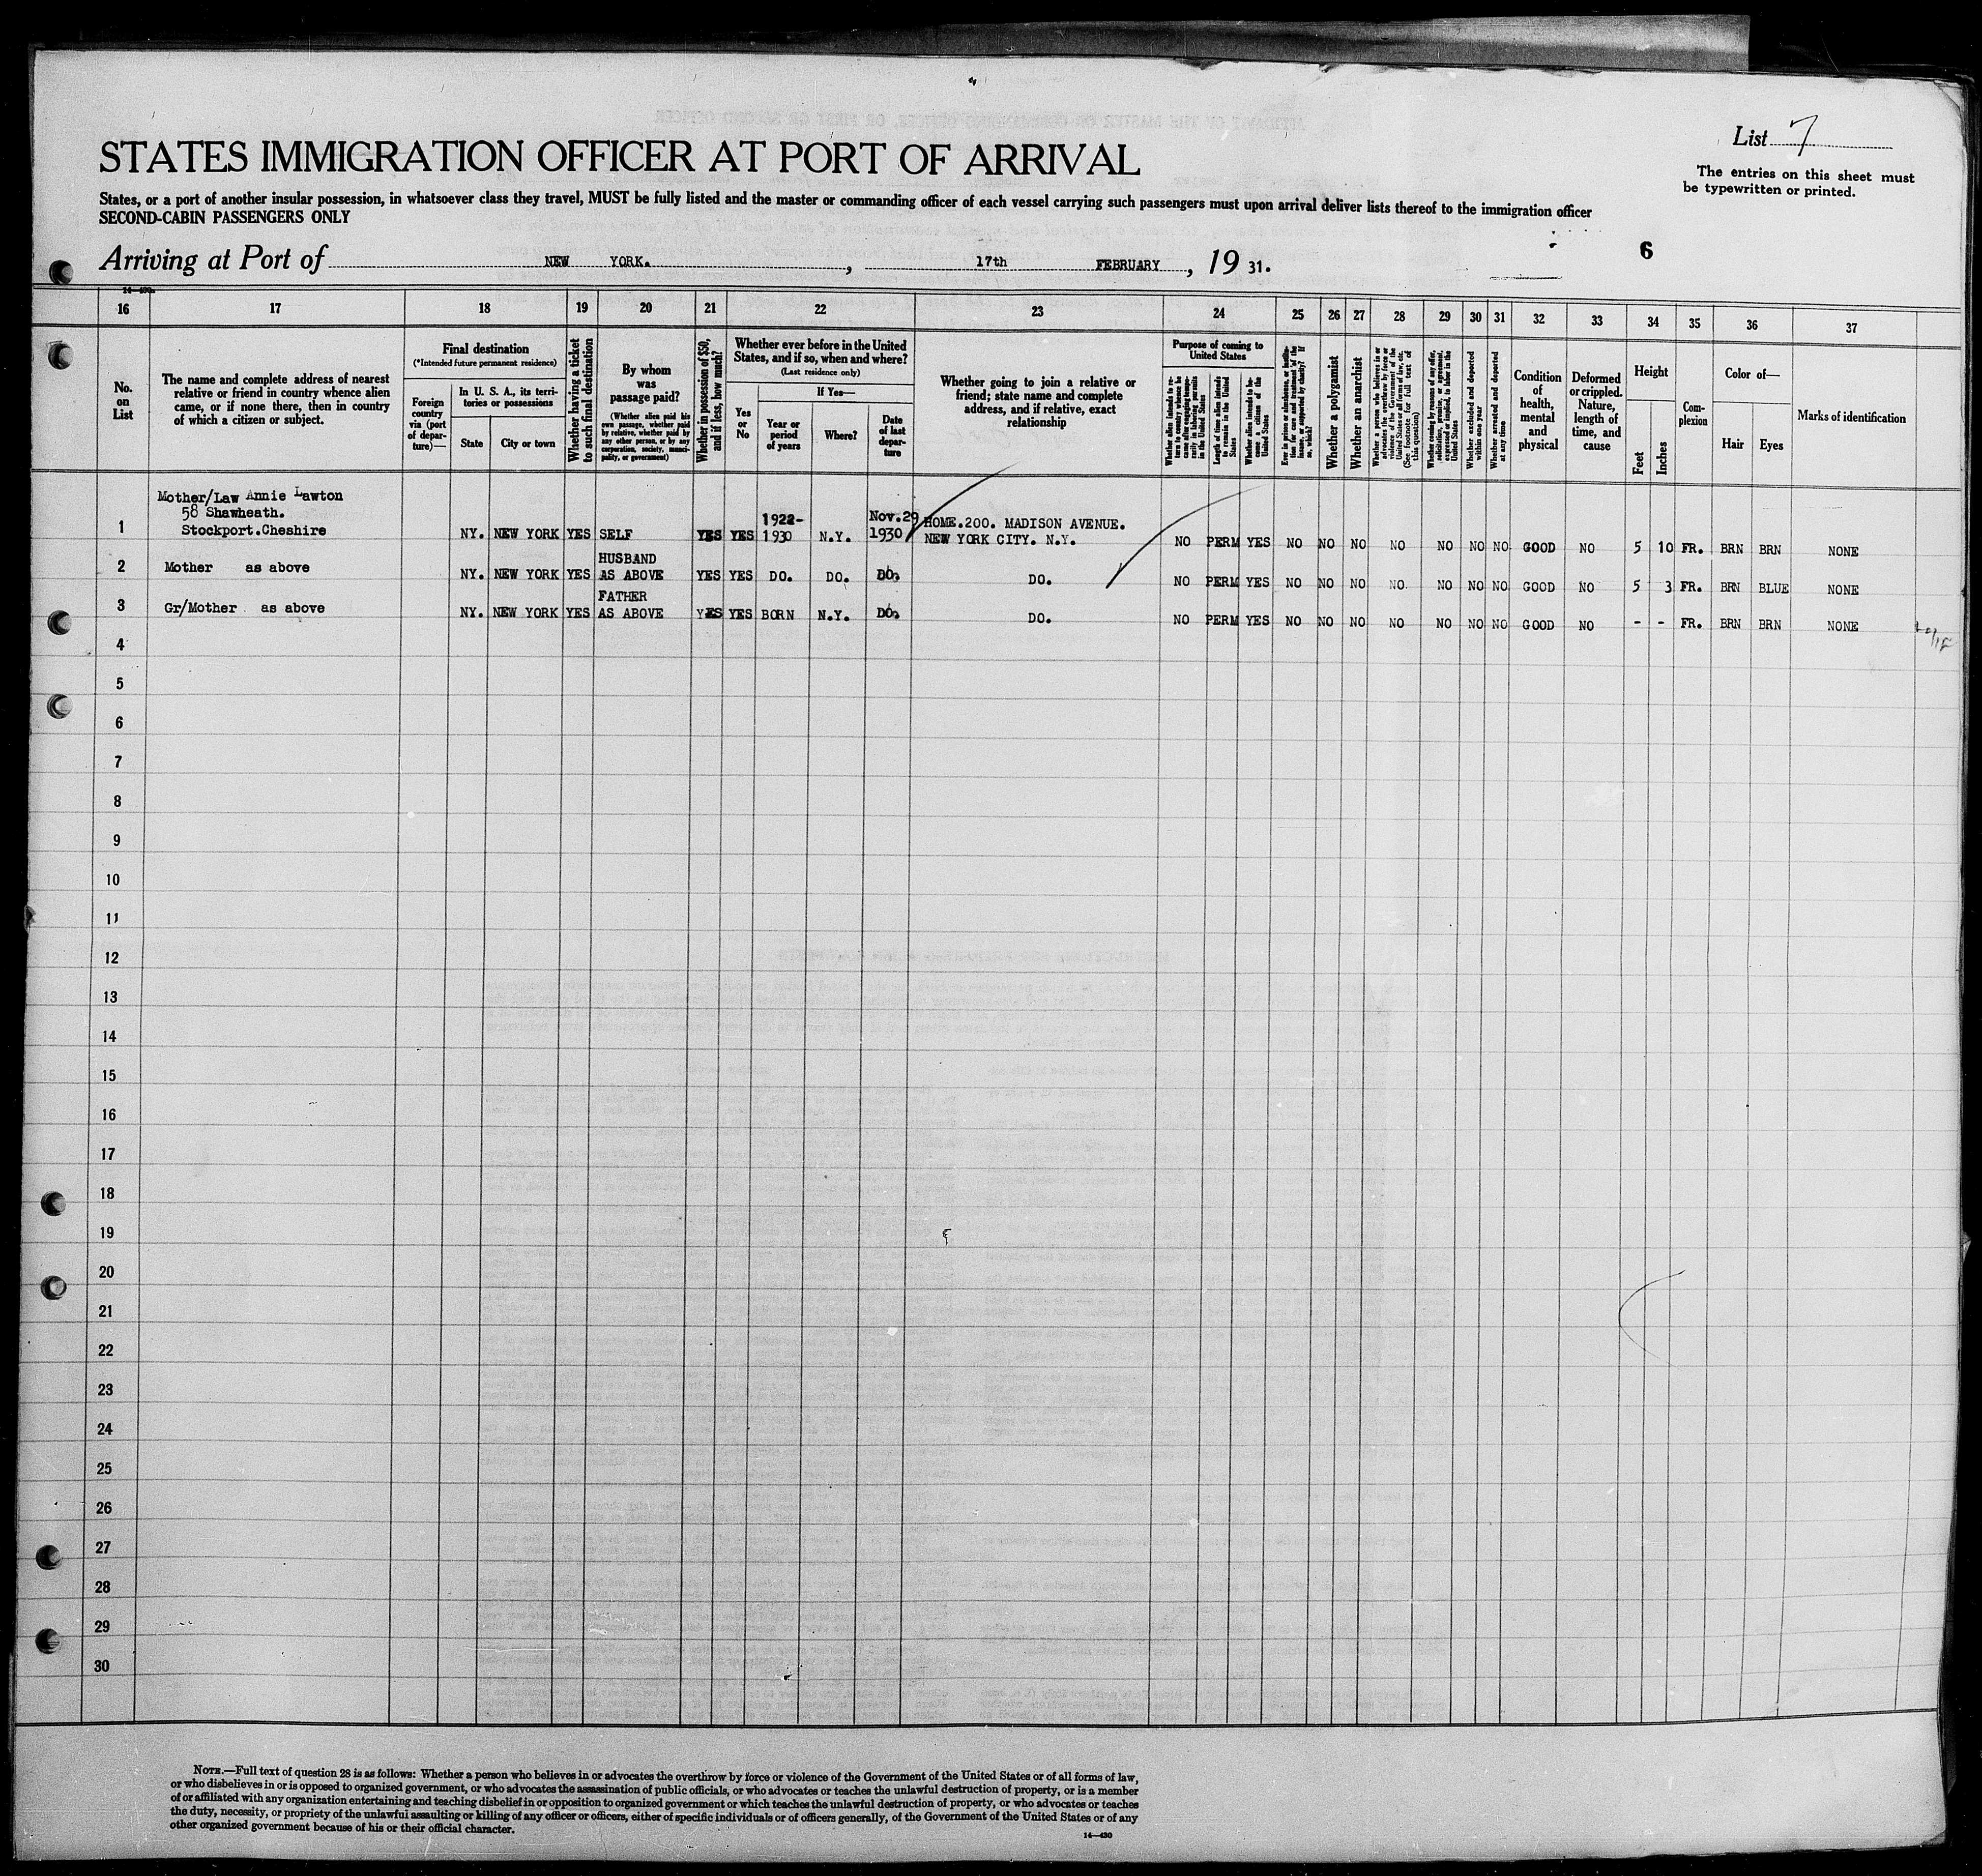 List 7
The entries on this sheet must
be typewritten or printed.
STATES IMMIGRATION OFFICER AT PORT OF ARRIVAL
States, or a port of another insular possession, in whatsoever class they travel, MUST be fully listed and the master or commanding officer of each vessel carrying such passengers must upon arrival deliver lists thereof to the immigration officer
SECOND-CABIN PASSENGERS ONLY
6
Arriving at Port of NEW YORK. , 17th FEBRUARY , 19 31.
16 17 18 19 20 21 22 23 24 25 26 27 28 29 30 31 32 33 34 35 36 37
No.
on
List
The name and complete address of nearest
relative or friend in country whence alien
came, or if none there, then in country
of which a citizen or subject.
Final destination
(*Intended future permanent residence)
Foreign
country
via (port
of depar-
ture)—
In U. S. A., its terri-
tories or possessions
State
City or town
Whether having a ticket
to such final destination
By whom
was
passage paid?
(Whether alien paid his
own passage, whether paid
by relative, whether paid by
any other person, or by any
corporation, society, munici-
pality, or government)
Whether in possession of $50,
and if less, how much?
Whether ever before in the United
States, and if so, when and where?
(Last residence only)
Yes
or
No
If Yes—
Year or
period
of years
Where?
Date
of last
depar-
ture
Whether going to join a relative or
friend; state name and complete
address, and if relative, exact
relationship
Purpose of coming to
United States
Whether alien intends to re-
turn to country whence he
came after engaging tempo-
rarily in laboring pursuits
in the United States
Length of time alien intends
to remain in the United
States
Whether alien intends to be-
come a citizen of the
United States
Ever in prison or almshouse, or institu-
tion for care and treatment of the
insane, or supported by charity? If
so, which?
Whether a polygamist
Whether an anarchist
Whether a person who believes in or
advocates the overthrow by force or
violence of the Government of the
United States or all forms of law, etc.
(See footnote for full text of
this question)
Whether coming by reason of any offer,
solicitation, promise, or agreement,
expressed or implied, to labor in the
United States
Whether excluded and deported
within one year
Whether arrested and deported
at any time
Condition
of
health,
mental
and
physical
Deformed
or crippled.
Nature,
length of
time, and
cause
Height
Feet
Inches
Com-
plexion
Color of—
Hair
Eyes
Marks of identification
Mother/Law Annie Lawton
58 Shawheath.
1 Stockport.Cheshire NY. NEW YORK YES SELF YES YES 1922-1930 N.Y. Nov.29 1930 HOME.200. MADISON AVENUE. NEW YORK CITY. N.Y. NO PERM YES NO NO NO NO NO NO NO GOOD NO 5 10 FR. BRN BRN NONE
2 Mother as above NY. NEW YORK YES HUSBAND AS ABOVE YES YES DO. DO. DO. DO. NO PERM YES NO NO NO NO. NO NO NO GOOD NO 5 3 FR. BRN BLUE NONE
3 Gr/Mother as above NY. NEW YORK YES FATHER AS ABOVE YES YES BORN N.Y. DO. DO. NO PERM YES NO NO NO NO NO NO NO GOOD NO - - FR. BRN BRN NONE
4
5
6
7
8
9
10
11
12
13
14
15
16
17
18
19
20
21
22
23
24
25
26
27
28
29
30
NOTE.—Full text of question 28 is as follows: Whether a person who believes in or advocates the overthrow by force or violence of the Government of the United States or of all forms of law,
or who disbelieves in or is opposed to organized government, or who advocates the assassination of public officials, or who advocates or teaches the unlawful destruction of property, or is a member
of or affiliated with any organization entertaining and teaching disbelief in or opposition to organized government or which teaches the unlawful destruction of property, or who advocates or teaches
the duty, necessity, or propriety of the unlawful assaulting or killing of any officer or officers, either of specific individuals or of officers generally, of the Government of the United States or of any
other organized government because of his or their official character.
14—430